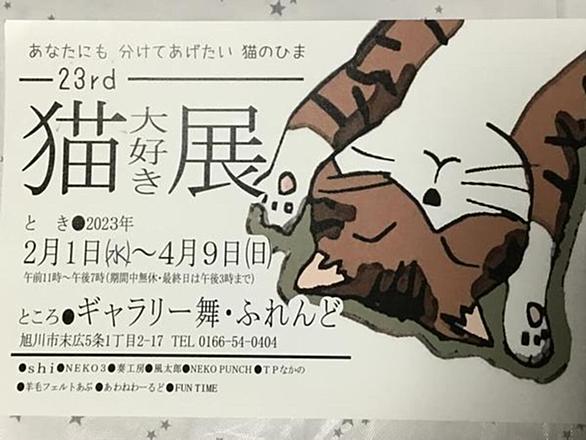 あなたにも 分けてあげたい 猫のひま
23rd
猫大好き展
とき●2023年
2月1日㈬～4月9日㈰
午前11時～午後7時（期間中無休・最終日は午後3時まで）
ところ●ギャラリー舞・ふれんど
旭川市末広5条1丁目2-17 TEL 0166-54-0404
●shi●NEKO3●奏工房●風太郎●NEKO PUNCH●TPなかの
●羊毛フェルトあぶ●あわねわーるど●FUN TIME